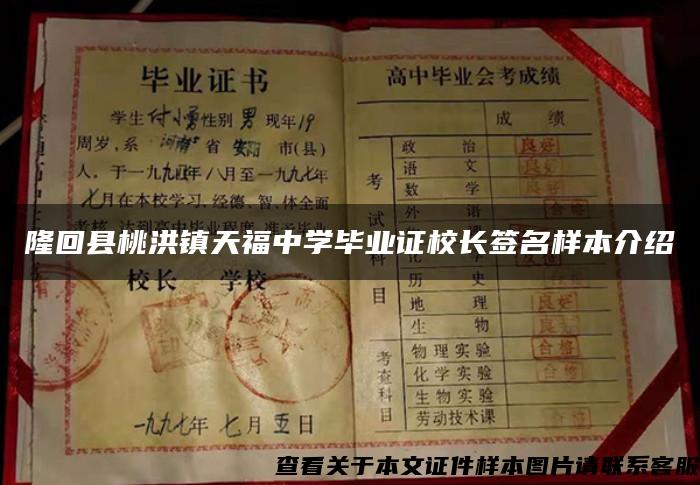 毕业证书
学生付小勇性别男现年19
周岁，系河南省安阳市(县)
人，于一九九四年八月至一九九七年
七月在本校学习，经德、智、体全面
隆回县桃洪镇天福中学毕业证校长签名样本介绍
校长 学校
一九九七年七月五日
高中毕业会考成绩
成绩
考试科目
政治 良好
语文 良好
数学
外语
化学
历史 良好
地理 良好
生物
考查科目
物理实验 合格
化学实验 合格
生物实验
劳动技术课 合格
查看关于本文证件样本图片请联系客服